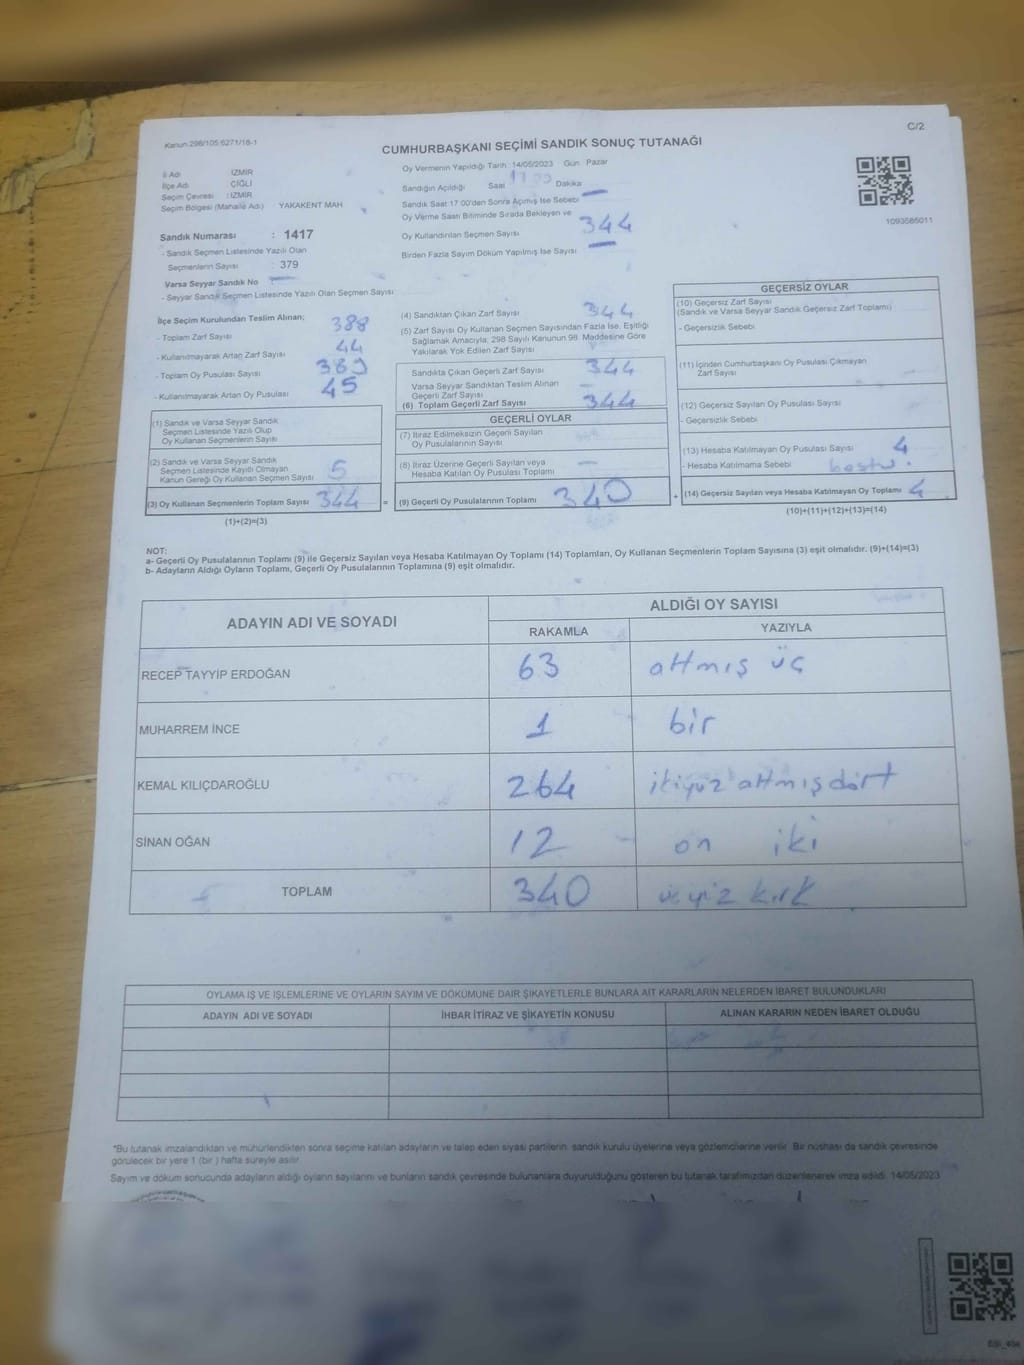 Kanun:298/105;6271/18-1
C/2
CUMHURBAŞKANI SEÇİMİ SANDIK SONUÇ TUTANAĞI
İl Adı : İZMİR
İlçe Adı : ÇİĞLİ
Seçim Çevresi : İZMİR
Seçim Bölgesi (Mahalle Adı) YAKAKENT MAH.
Sandık Numarası : 1417
- Sandık Seçmen Listesinde Yazılı Olan
Seçmenlerin Sayısı : 379
Varsa Seyyar Sandık No :
- Seyyar Sandık Seçmen Listesinde Yazılı Olan Seçmen Sayısı
Oy Vermenin Yapıldığı Tarih :14/05/2023 Gün: Pazar
Sandığın Açıldığı Saat 17:00 Dakika —
Sandık Saat 17:00'dan Sonra Açılmış İse Sebebi
Oy Verme Saati Bitiminde Sırada Bekleyen ve
Oy Kullandırılan Seçmen Sayısı 344
Birden Fazla Sayım Döküm Yapılmış İse Sayısı —
1093585011
İlçe Seçim Kurulundan Teslim Alınan;
- Toplam Zarf Sayısı 388
- Kullanılmayarak Artan Zarf Sayısı 44
- Toplam Oy Pusulası Sayısı 389
- Kullanılmayarak Artan Oy Pusulası 45
(1) Sandık ve Varsa Seyyar Sandık
Seçmen Listesinde Yazılı Olup
Oy Kullanan Seçmenlerin Sayısı
(2) Sandık ve Varsa Seyyar Sandık
Seçmen Listesinde Kayıtlı Olmayan
Kanun Gereği Oy Kullanan Seçmen Sayısı 5
(3) Oy Kullanan Seçmenlerin Toplam Sayısı 344 =
(1)+(2)=(3)
(4) Sandıktan Çıkan Zarf Sayısı 344
(5) Zarf Sayısı Oy Kullanan Seçmen Sayısından Fazla İse, Eşitliği
Sağlamak Amacıyla; 298 Sayılı Kanunun 98. Maddesine Göre
Yakılarak Yok Edilen Zarf Sayısı
Sandıkta Çıkan Geçerli Zarf Sayısı 344
Varsa Seyyar Sandıktan Teslim Alınan
Geçerli Zarf Sayısı —
(6) Toplam Geçerli Zarf Sayısı 344
GEÇERLİ OYLAR
(7) İtiraz Edilmeksizin Geçerli Sayılan
Oy Pusulalarının Sayısı
(8) İtiraz Üzerine Geçerli Sayılan veya
Hesaba Katılan Oy Pusulası Toplamı —
(9) Geçerli Oy Pusulalarının Toplamı 340 +
GEÇERSİZ OYLAR
(10) Geçersiz Zarf Sayısı
(Sandık ve Varsa Seyyar Sandık Geçersiz Zarf Toplamı)
- Geçersizlik Sebebi
(11) İçinden Cumhurbaşkanı Oy Pusulası Çıkmayan
Zarf Sayısı
(12) Geçersiz Sayılan Oy Pusulası Sayısı
- Geçersizlik Sebebi
(13) Hesaba Katılmayan Oy Pusulası Sayısı 4
- Hesaba Katılmama Sebebi
(14) Geçersiz Sayılan veya Hesaba Katılmayan Oy Toplamı 4
(10)+(11)+(12)+(13)=(14)
NOT:
a- Geçerli Oy Pusulalarının Toplamı (9) ile Geçersiz Sayılan veya Hesaba Katılmayan Oy Toplamı (14) Toplamları, Oy Kullanan Seçmenlerin Toplam Sayısına (3) eşit olmalıdır. (9)+(14)=(3)
b- Adayların Aldığı Oyların Toplamı, Geçerli Oy Pusulalarının Toplamına (9) eşit olmalıdır.
ADAYIN ADI VE SOYADI ALDIĞI OY SAYISI
RAKAMLA YAZIYLA
RECEP TAYYİP ERDOĞAN 63 altmış üç
MUHARREM İNCE 1 bir
KEMAL KILIÇDAROĞLU 264 ikiyüz altmışdört
SİNAN OĞAN 12 on iki
TOPLAM 340 üçyüz kırk
OYLAMA İŞ VE İŞLEMLERİNE VE OYLARIN SAYIM VE DÖKÜMÜNE DAİR ŞİKAYETLERLE BUNLARA AİT KARARLARIN NELERDEN İBARET BULUNDUKLARI
ADAYIN ADI VE SOYADI İHBAR İTİRAZ VE ŞİKAYETİN KONUSU ALINAN KARARIN NEDEN İBARET OLDUĞU
*Bu tutanak imzalandıktan ve mühürlendikten sonra seçime katılan adayların ve talep eden siyasi partilerin, sandık kurulu üyelerine veya gözlemcilerine verilir. Bir nüshası da sandık çevresinde
görülecek bir yere 1 (bir) hafta süreyle asılır.
Sayım ve döküm sonucunda adayların aldığı oyların sayılarını ve bunların sandık çevresinde bulunanlara duyurulduğunu gösteren bu tutanak tarafımızdan düzenlenerek imza edildi. 14/05/2023